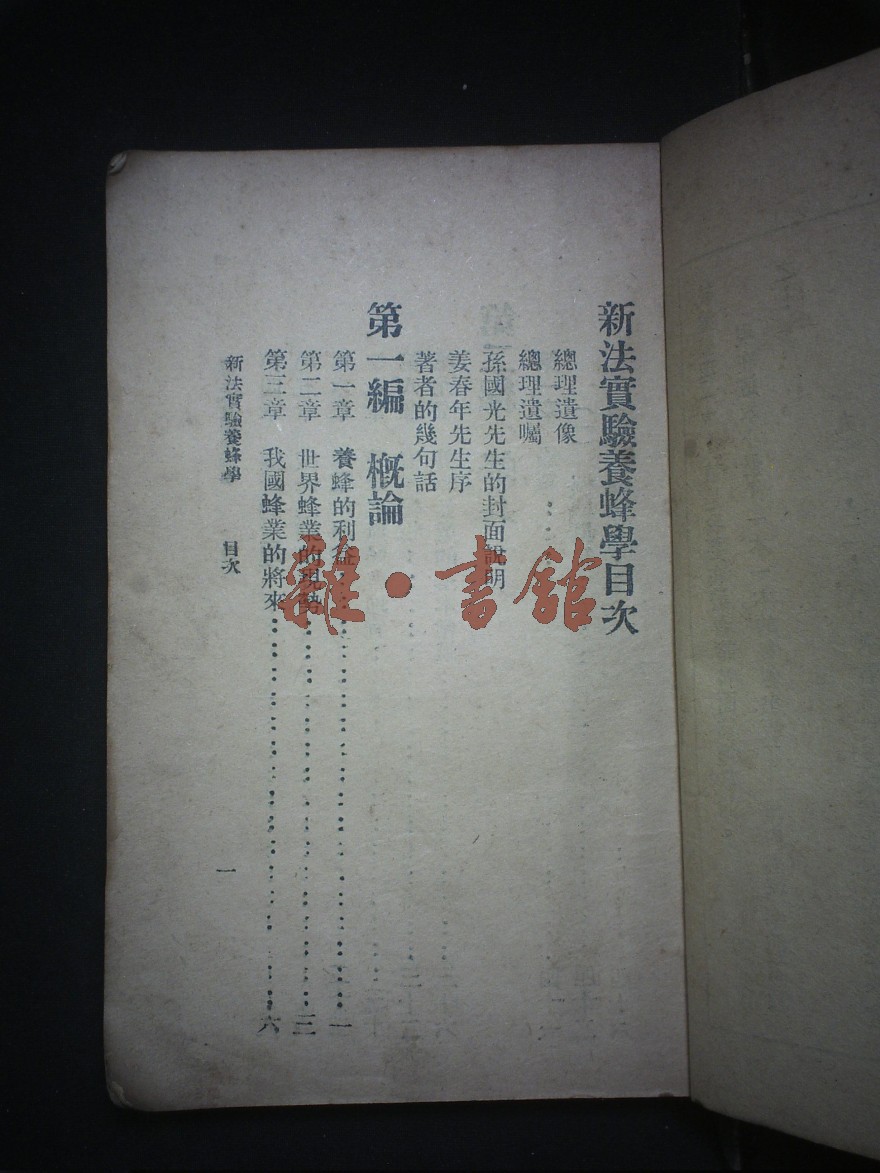 新法實驗養蜂學目次
總理遺像
總理遺囑
孫國光先生的封面說明
姜春年先生序
著者的幾句話
第一編 概論
第一章 養蜂的利益……一
第二章 世界蜂業的現勢……三
第三章 我國蜂業的將來……六
新法實驗養蜂學 目次 一
雜·書館